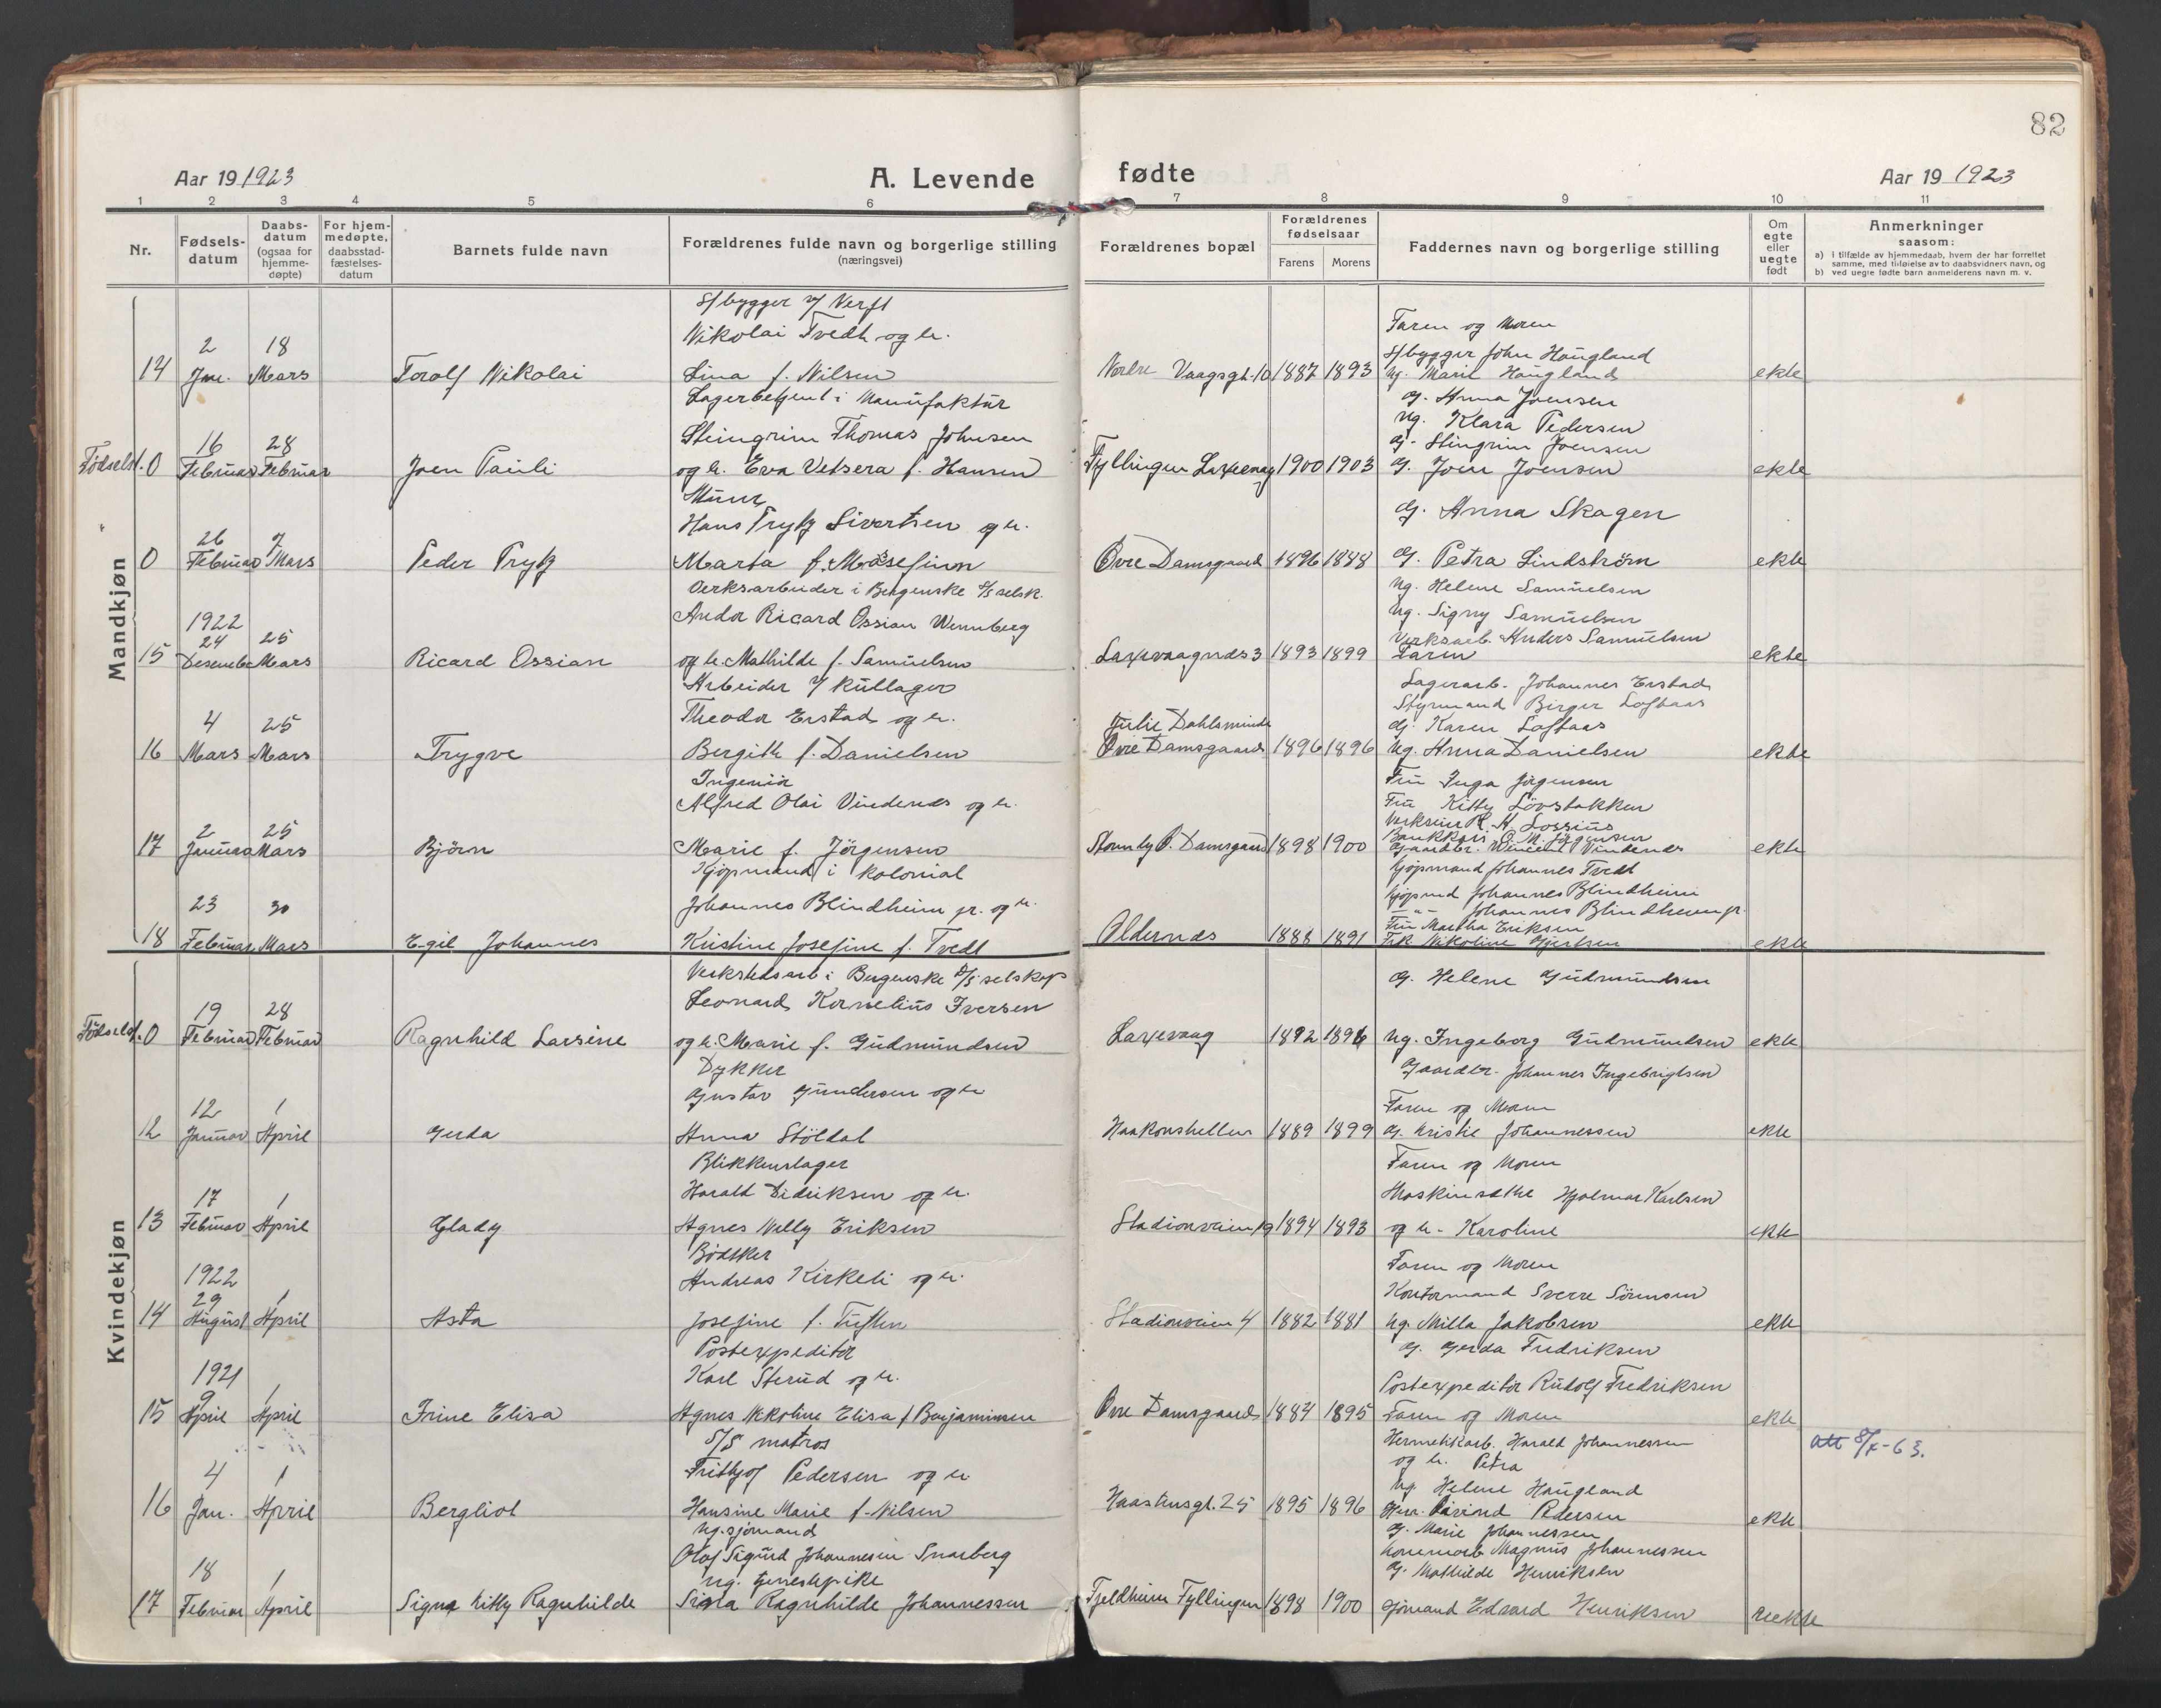 82
Aar 19 1923
A. Levende fødte
Aar 19 1923
1 2 3 4 5 6 7 8 9 10 11
Nr.
Fødsels-
datum
Daabs-
datum
(ogsaa for
hjemme-
døpte)
For hjem-
medøpte,
daabsstad-
fæstelses-
datum
Barnets fulde navn
Forældrenes fulde navn og borgerlige stilling
(næringsvei)
Forældrenes bopæl
Forældrenes
fødselsaar
Farens Morens
Faddernes navn og borgerlige stilling
Om
egte
eller
uegte
født
Anmerkninger
saasom:
a) i tilfælde av hjemmedaab, hvem der har forrettet
samme, med tilføielse av to daabsvidners navn, og
b) ved uegte fødte barn anmelderens navn m. v.
Mandkjøn
14
2
Jan.
18
Mars
Torolf Nikolai
S/bygger v/ Verft
Nikolai Tvedt og h.
Lina f. Nilsen
Nordre Vaagsgt. 10
1887 1893
Faren og Moren
S/bygger John Haugland
Ug. Marie Haugland
ekte
Fødselsst. 0
16
Februar
28
Februar
Joen Pauli
Lagerbetjent i Manufaktur
Steingrim Thomas Johnsen
og h. Eva Vetsera f. Hansen
Fyllingen Laxevaag
1900 1903
G. Anna Joensen
Ug. Klara Pedersen
G. Stingrim Joensen
G. Joen Joensen
ekte
0
26
Februar
7
Mars
Peder Tryty
Murer
Hans Tryty Sivertsen og h.
Marta f. Mosefinn
Øvre Damsgaard
1896 1888
G. Anna Skagen
G. Petra Lindstrøm
ekte
15
1922
24
Desember
25
Mars
Ricard Ossian
Verksarbeider i Bergenske D/S selsk.
Andor Ricard Ossian Wennberg
og h. Mathilde f. Samuelsen
Laxevaagnes 3
1893 1899
Ug. Helene Samuelsen
Ug. Signy Samuelsen
Verksarb. Anders Samuelsen
Faren
ekte
16
4
Mars
25
Mars
Trygve
Arbeider v/ kullager
Theodor Erstad og h.
Bergith f. Danielsen
Julie Dahlsminde
Øvre Damsgaard
1896 1896
Lagerarb. Johannes Erstad
Styrmand Birger Loftaas
G. Karen Loftaas
Ug. Anna Danielsen
ekte
17
2
Januar
25
Mars
Bjørn
Ingeniør
Alfred Olai Vindenes og h.
Marie f. Jörgensen
Ø. Damsgaard
1898 1900
Fru Inga Jörgensen
Fru Kitty Lövstakken
H. Lossius
O. M. Jörgensen
Gaardbr. Vincent Vindenes
ekte
18
23
Februar
30
Mars
Egil Johannes
Kjøpmand i kolonial
Johannes Blindheim jr. og h.
Kristine Josefine f. Tvedt
Aldernes
1888 1891
Kjøpmand Johannes Tvedt
Kjøpmd Johannes Blindheim
— " — Johannes Blindheim jr.
Fru Martha Eriksen
Frk Nikoline Gjertsen
ekte
Kvindekjøn
Fødselsst. 0
19
Februar
28
Februar
Ragnhild Larsine
Verkstedsarb i Bergenske D/S selskap
Leonard Kornelius Iversen
og h. Marie f. Gudmundsen
Laxevaag
1892 1896
G. Helene Gudmundsen
Ug. Ingeborg Gudmundsen
ekte
12
12
Januar
1
April
Gerda
Dykker
Gustav Gundersen og h
Anna Stöldal
Haakonshellen
1889 1899
Gaardbr. Johannes Ingebrigtsen
Faren og Moren
G. Kristie Johannessen
ekte
13
17
Februar
1
April
Glady
Blikkenslager
Harald Didriksen og h.
Agnes Nelly Eriksen
Stadionveien 19
1894 1893
Faren og Moren
Maskinsethe Hjalmar Karlsen
og h. Karoline
ekte
14
1922
29
August
1
April
Asta
Bødtker
Andreas Kirkeli og h.
Josefine f. Tuften
Stadionveien 4
1882 1881
Faren og Moren
Kontormand Sverre Sörensen
Ug. Milla Jakobsen
ekte
15
1921
9
April
1
April
Irine Elisa
Postexpeditör
Karl Sterud og h.
Agnes Nikoline Elisa f Benjaminsen
Øvre Damsgaard
1884 1895
G. Gerda Fredriksen
Postexpeditör Rudolf Fredriksen
Faren og Moren
ekte
16
4
Jan.
1
April
Bergliot
S/S matros
Frithjof Pedersen og h
Hansine Marie f. Nilsen
Haasteinsgt. 25
1895 1896
Hermetikkarb. Harald Johannessen
og h. Petra
Ug. Helene Haugland
Pedersen
ekte
att 8/X-63.
17
18
Februar
1
April
Signe Kitty Ragnhilde
Ug. sjömand
Olaf Sigurd Johannesen Snarberg
Ug. tjenestepike
Signa Ragnhilde Johannessen
Fjeldheim Fyllingen
1898 1900
G. Marie Johannessen
Magnus Johannessen
G. Mathilde Henriksen
Sjömand Edvard Henriksen
uekte